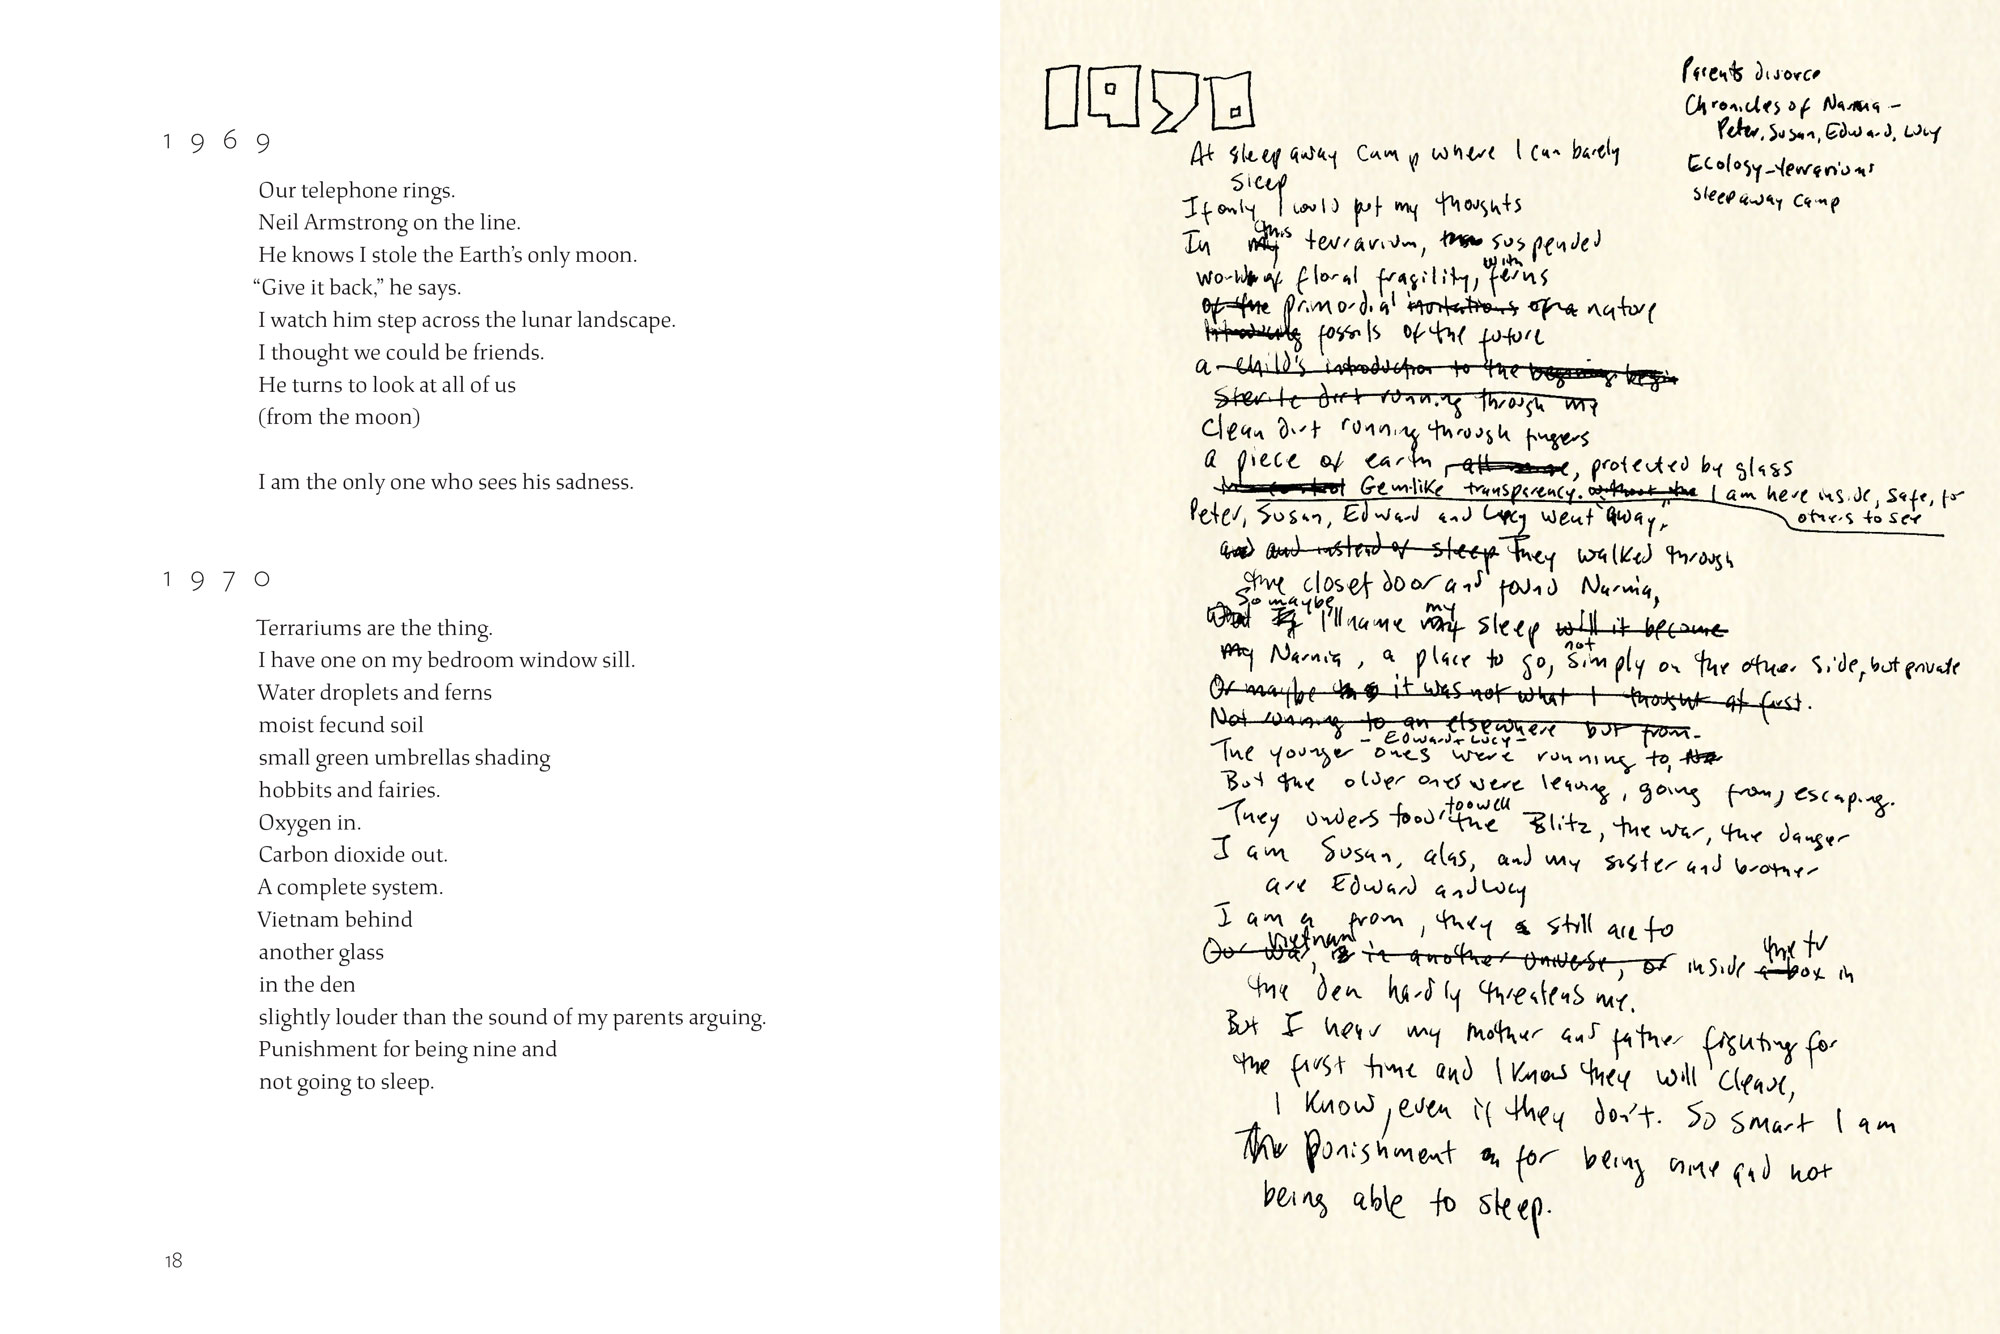 1969
Our telephone rings.
Neil Armstrong on the line.
He knows I stole the Earth's only moon.
“Give it back,” he says.
I watch him step across the lunar landscape.
I thought we could be friends.
He turns to look at all of us
(from the moon)
I am the only one who sees his sadness.
1970
Terrariums are the thing.
I have one on my bedroom window sill.
Water droplets and ferns
moist fecund soil
small green umbrellas shading
hobbits and fairies.
Oxygen in.
Carbon dioxide out.
A complete system.
Vietnam behind
another glass
in the den
slightly louder than the sound of my parents arguing.
Punishment for being nine and
not going to sleep.
18
1970
Parents divorce
Chronicles of Narnia –
Peter, Susan, Edward, Lucy
Ecology – terrariums
sleepaway camp
At sleepaway camp where I can barely
sleep
If only I could put my thoughts
this
In my terrarium, suspended
world of floral fragility, with ferns
of the primordial imitations of a nature
Introducing fossils of the future
a child's introduction to the beginning begin
Sterile dirt running through my
Clean dirt running through fingers
a piece of earth, protected by glass
In control Gem-like transparency. without the I am here inside, safe, for
others to see
Peter, Susan, Edward and Lucy went "away,"
and and instead of sleep They walked through
the closet door and found Narnia,
So maybe my
What if I'll name my sleep will it become
not
my Narnia, a place to go, simply on the other side, but private
Or maybe it was not what I thought at first.
Not running to an elsewhere but from–
– Edward + Lucy –
The younger ones were running to,
But the older ones were leaving, going from, escaping.
too well
They understood the Blitz, the war, the danger
I am Susan, alas, and my sister and brother
are Edward and Lucy
I am a from, they still are to
Vietnam the tv
Our war, is in another universe, or inside a box in
the den hardly threatens me.
But I hear my mother and father fighting for
the first time and I know they will cleave,
I know, even if they don't. So smart I am
The punishment for being nine and not
being able to sleep.